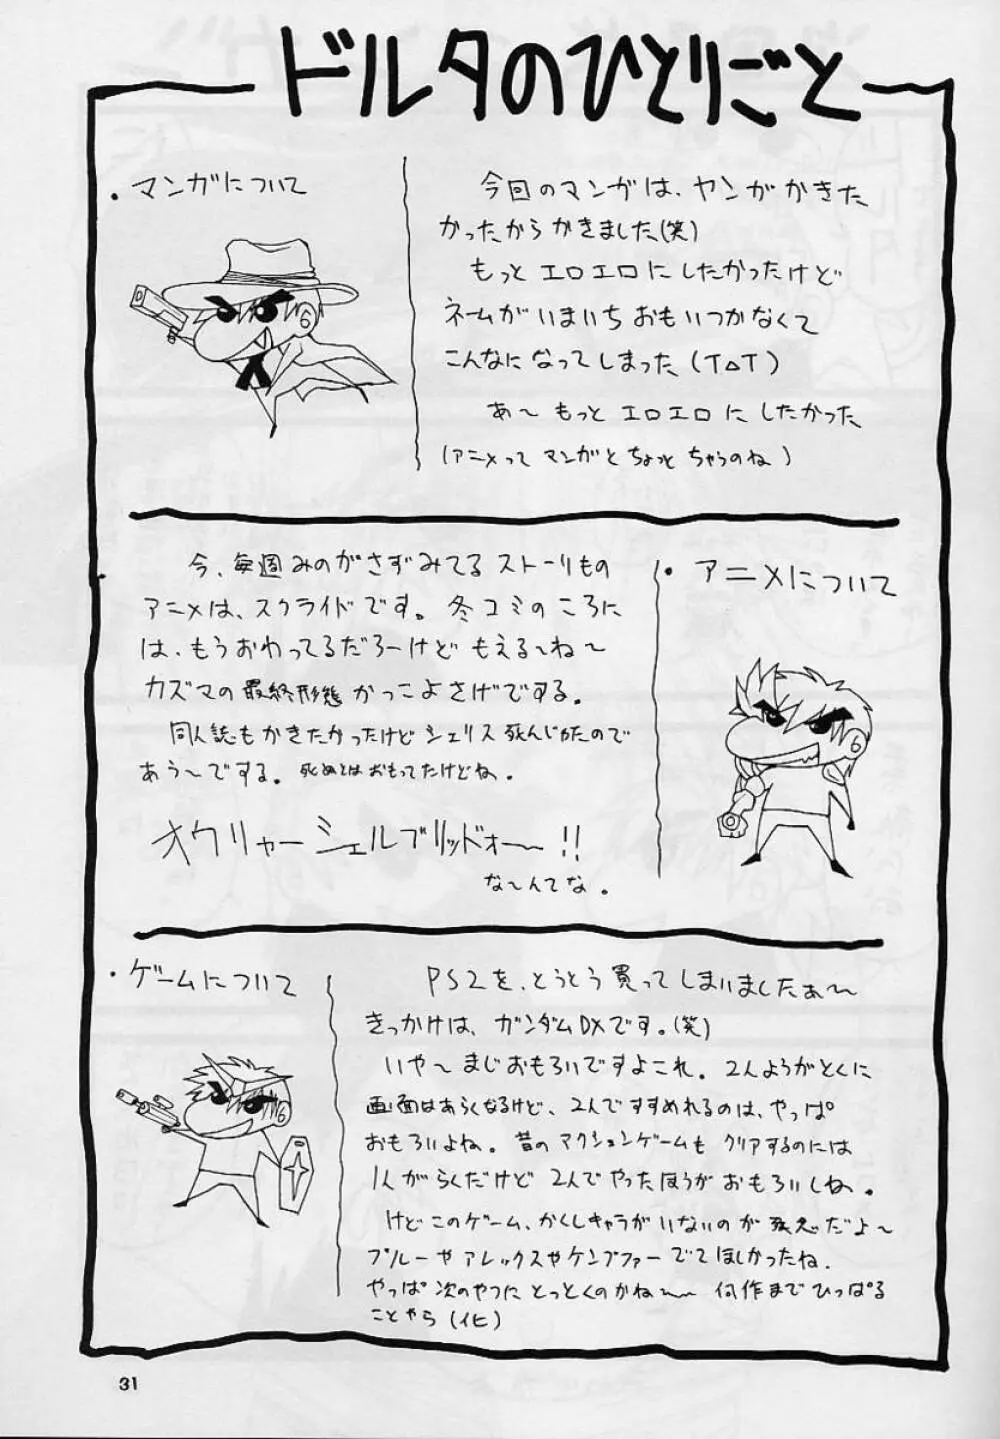 ドルタのひとりごと
・マンガについて
今回のマンガは、ヤンがかきた
かったからかきました(笑)
もっとエロエロにしたかったけど
ネームがいまいちおもいつかなくて
こんなになってしまった(T△T)
あ〜もっとエロエロにしたかった
(アニメってマンガとちょっとちゃうのね)
・アニメについて
今、毎週みのがさずみてるストーリもの
アニメは、スクライドです。冬コミのころに
は、もうおわってるだろーけどもえる〜ね〜
カズマの最終形態かっこよさげでする。
同人誌もかきたかったけどシェリス死んじゃたので
あう〜でする。死ぬとはおもってたけどね。
オウリャーシェルブリッドォー〜!!
な〜んてな。
・ゲームについて
PS2を、とうとう買ってしまいましたぁ〜
きっかけは、ガンダムDXです。(笑)
いや〜まじおもろいですよこれ。2人ようがとくに
画面はあらくなるけど、2人ですすめれるのは、やっぱ
おもろいよね。昔のアクションゲームもクリアするのには
1人がらくだけど2人でやったほうがおもろいしね。
けどこのゲーム、かくしキャラがいないのが残念だよ〜
プルーやアレックスやケンプファーでてほしかったね.
やっぱ次のやつにとっとくのかね〜 何作までひっぱる
ことやら(イヒ)
31